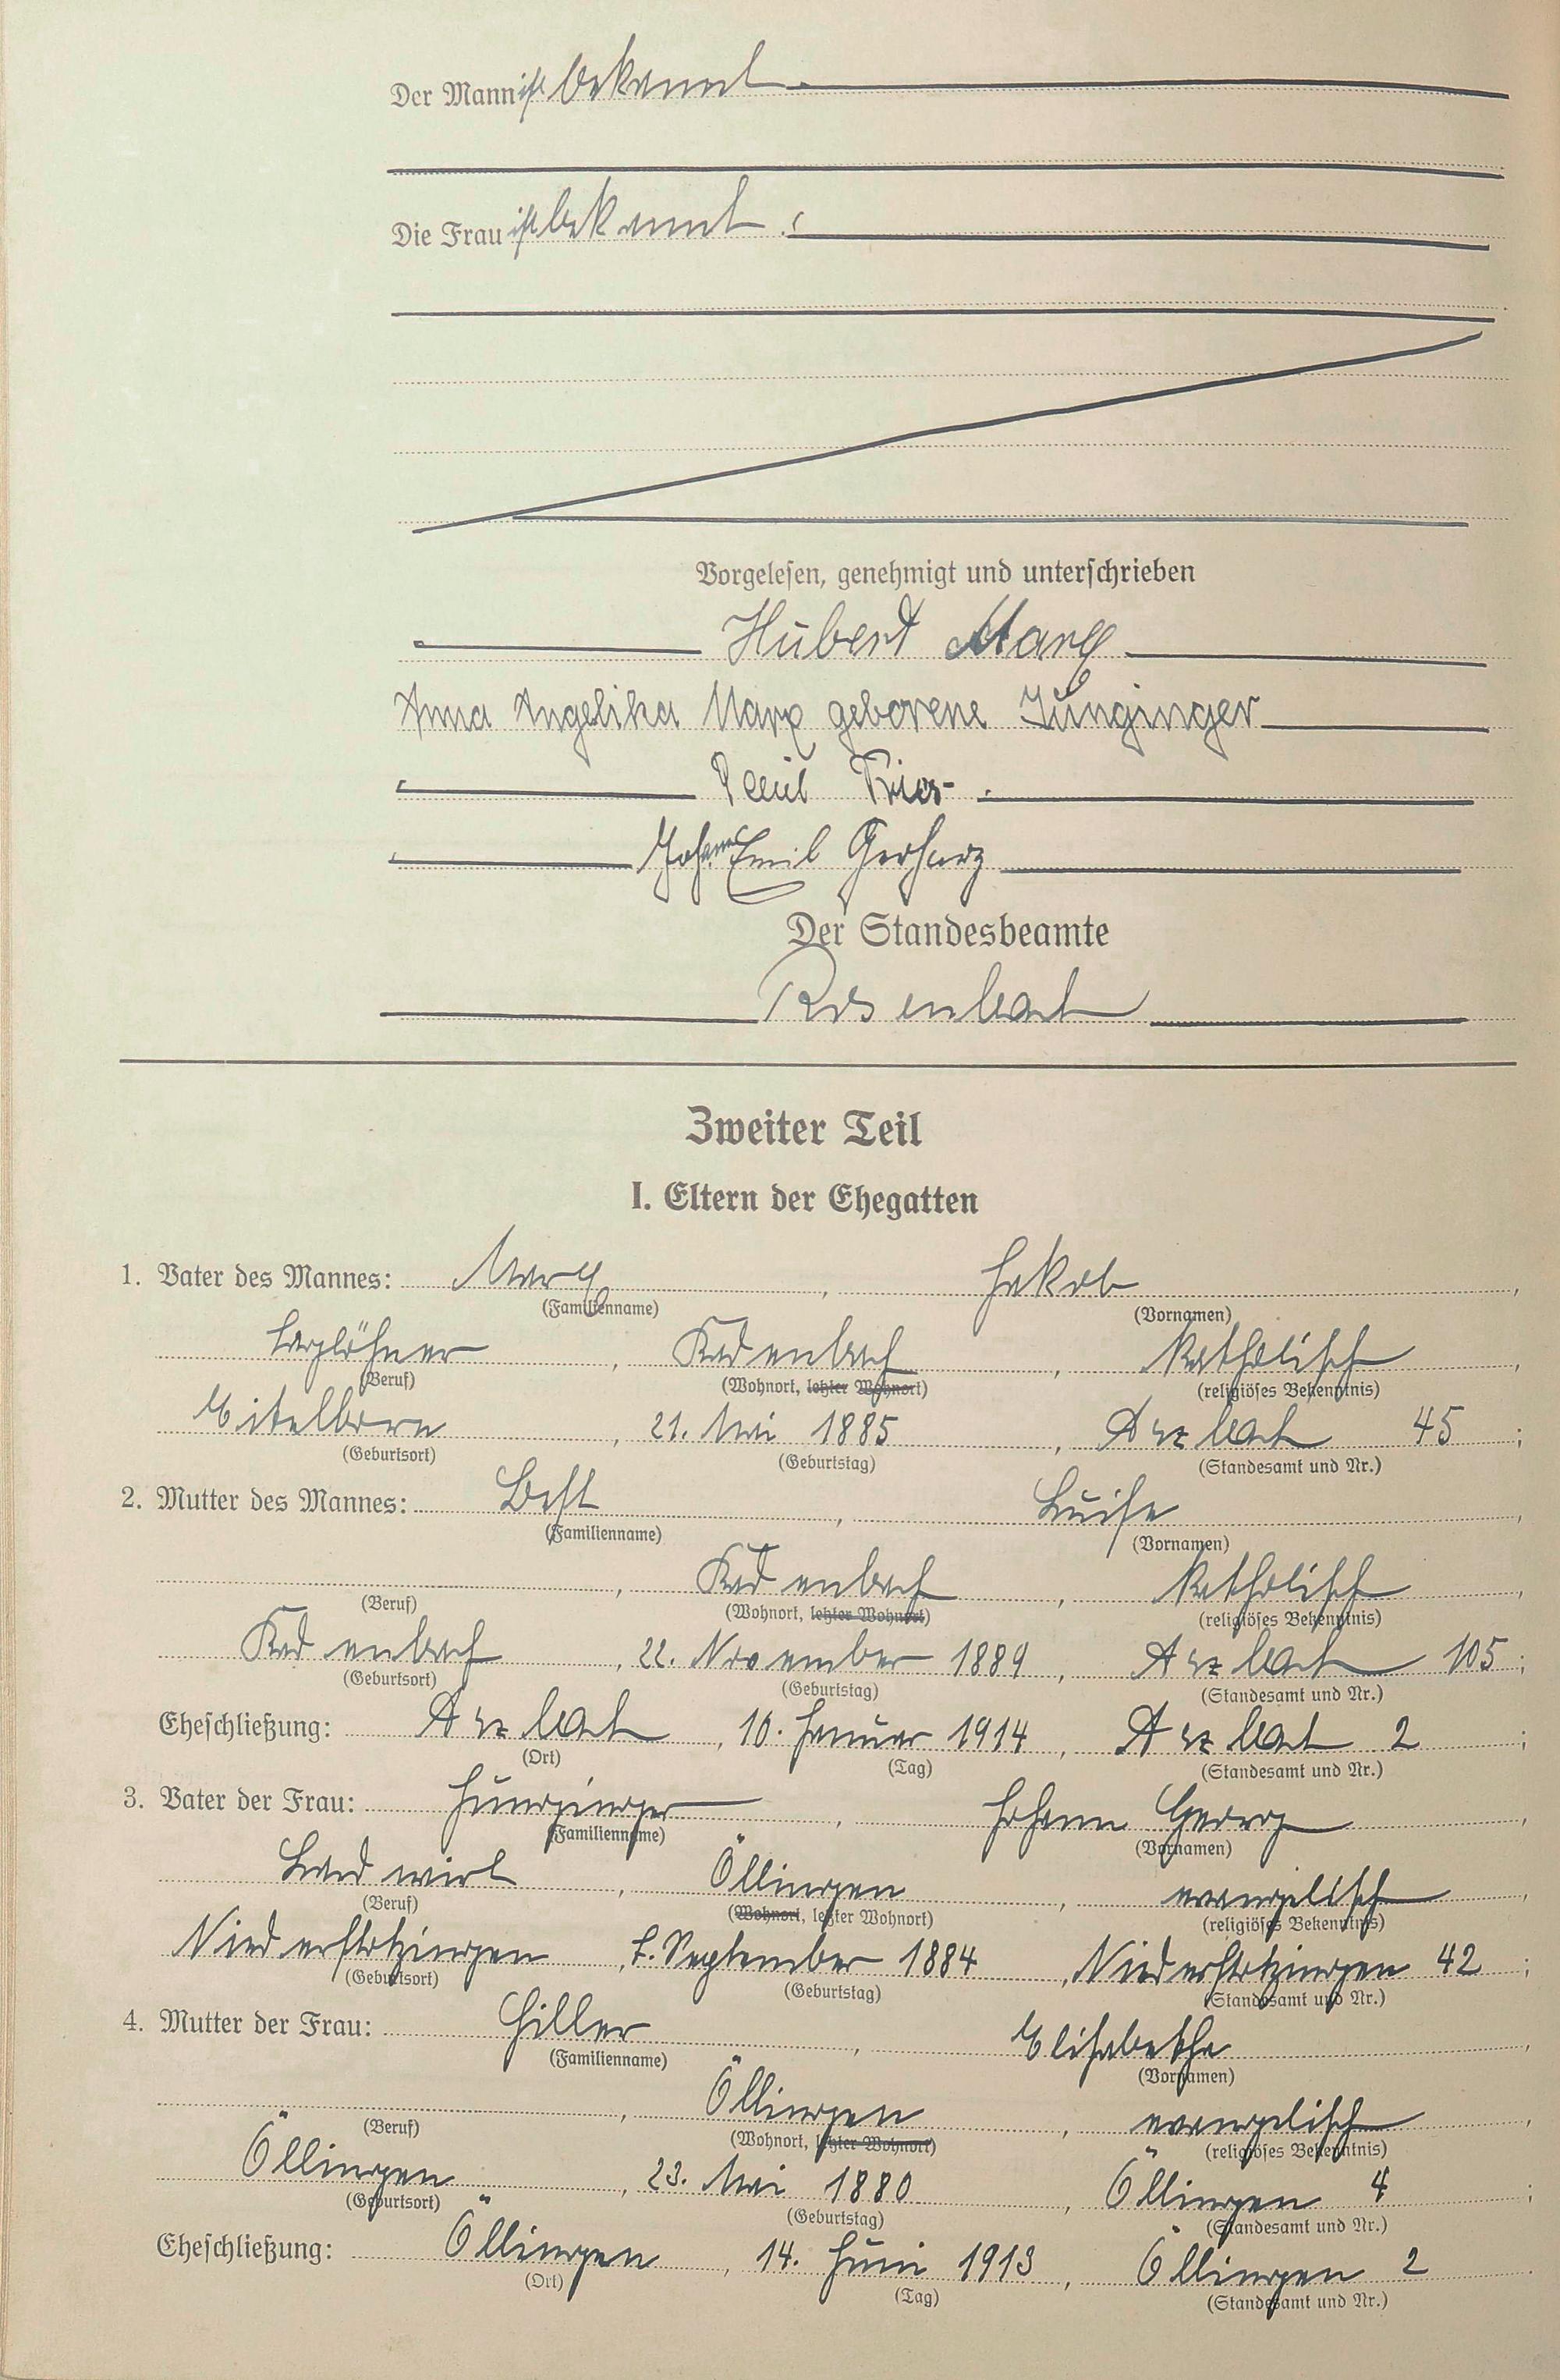 Der Mann ist bekannt.
Die Frau ist bekannt.
Vorgelesen, genehmigt und unterschrieben
Hubert Marx
Anna Angelika Marx geborene Junginger
Paul
Johann Emil Gerharz
Der Standesbeamte
Zweiter Teil
I. Eltern der Ehegatten
1. Vater des Mannes: Marx, Jakob,
(Familienname) (Vornamen)
Taglöhner, Kadenbach, katholisch,
(Beruf) (Wohnort, letzter Wohnort) (religiöses Bekenntnis)
Eitelborn, 21. Mai 1885, Arzbach 45;
(Geburtsort) (Geburtstag) (Standesamt und Nr.)
2. Mutter des Mannes: Best, Luise,
(Familienname) (Vornamen)
, Kadenbach, katholisch,
(Beruf) (Wohnort, letzter Wohnort) (religiöses Bekenntnis)
Kadenbach, 22. November 1889, Arzbach 105;
(Geburtsort) (Geburtstag) (Standesamt und Nr.)
Eheschließung: Arzbach, 10. Januar 1914, Arzbach 2;
(Ort) (Tag) (Standesamt und Nr.)
3. Vater der Frau: Junginger, Johann Georg,
(Familienname) (Vornamen)
Landwirt, Öllingen, evangelisch,
(Beruf) (Wohnort, letzter Wohnort) (religiöses Bekenntnis)
Niederstotzingen, September 1884, Niederstotzingen 42;
(Geburtsort) (Geburtstag) (Standesamt und Nr.)
4. Mutter der Frau: Hiller, Elisabetha,
(Familienname) (Vornamen)
, Öllingen, evangelisch,
(Beruf) (Wohnort, letzter Wohnort) (religiöses Bekenntnis)
Öllingen, 23. Mai 1880, Öllingen 4;
(Geburtsort) (Geburtstag) (Standesamt und Nr.)
Eheschließung: Öllingen, 14. Juni 1913, Öllingen 2.
(Ort) (Tag) (Standesamt und Nr.)